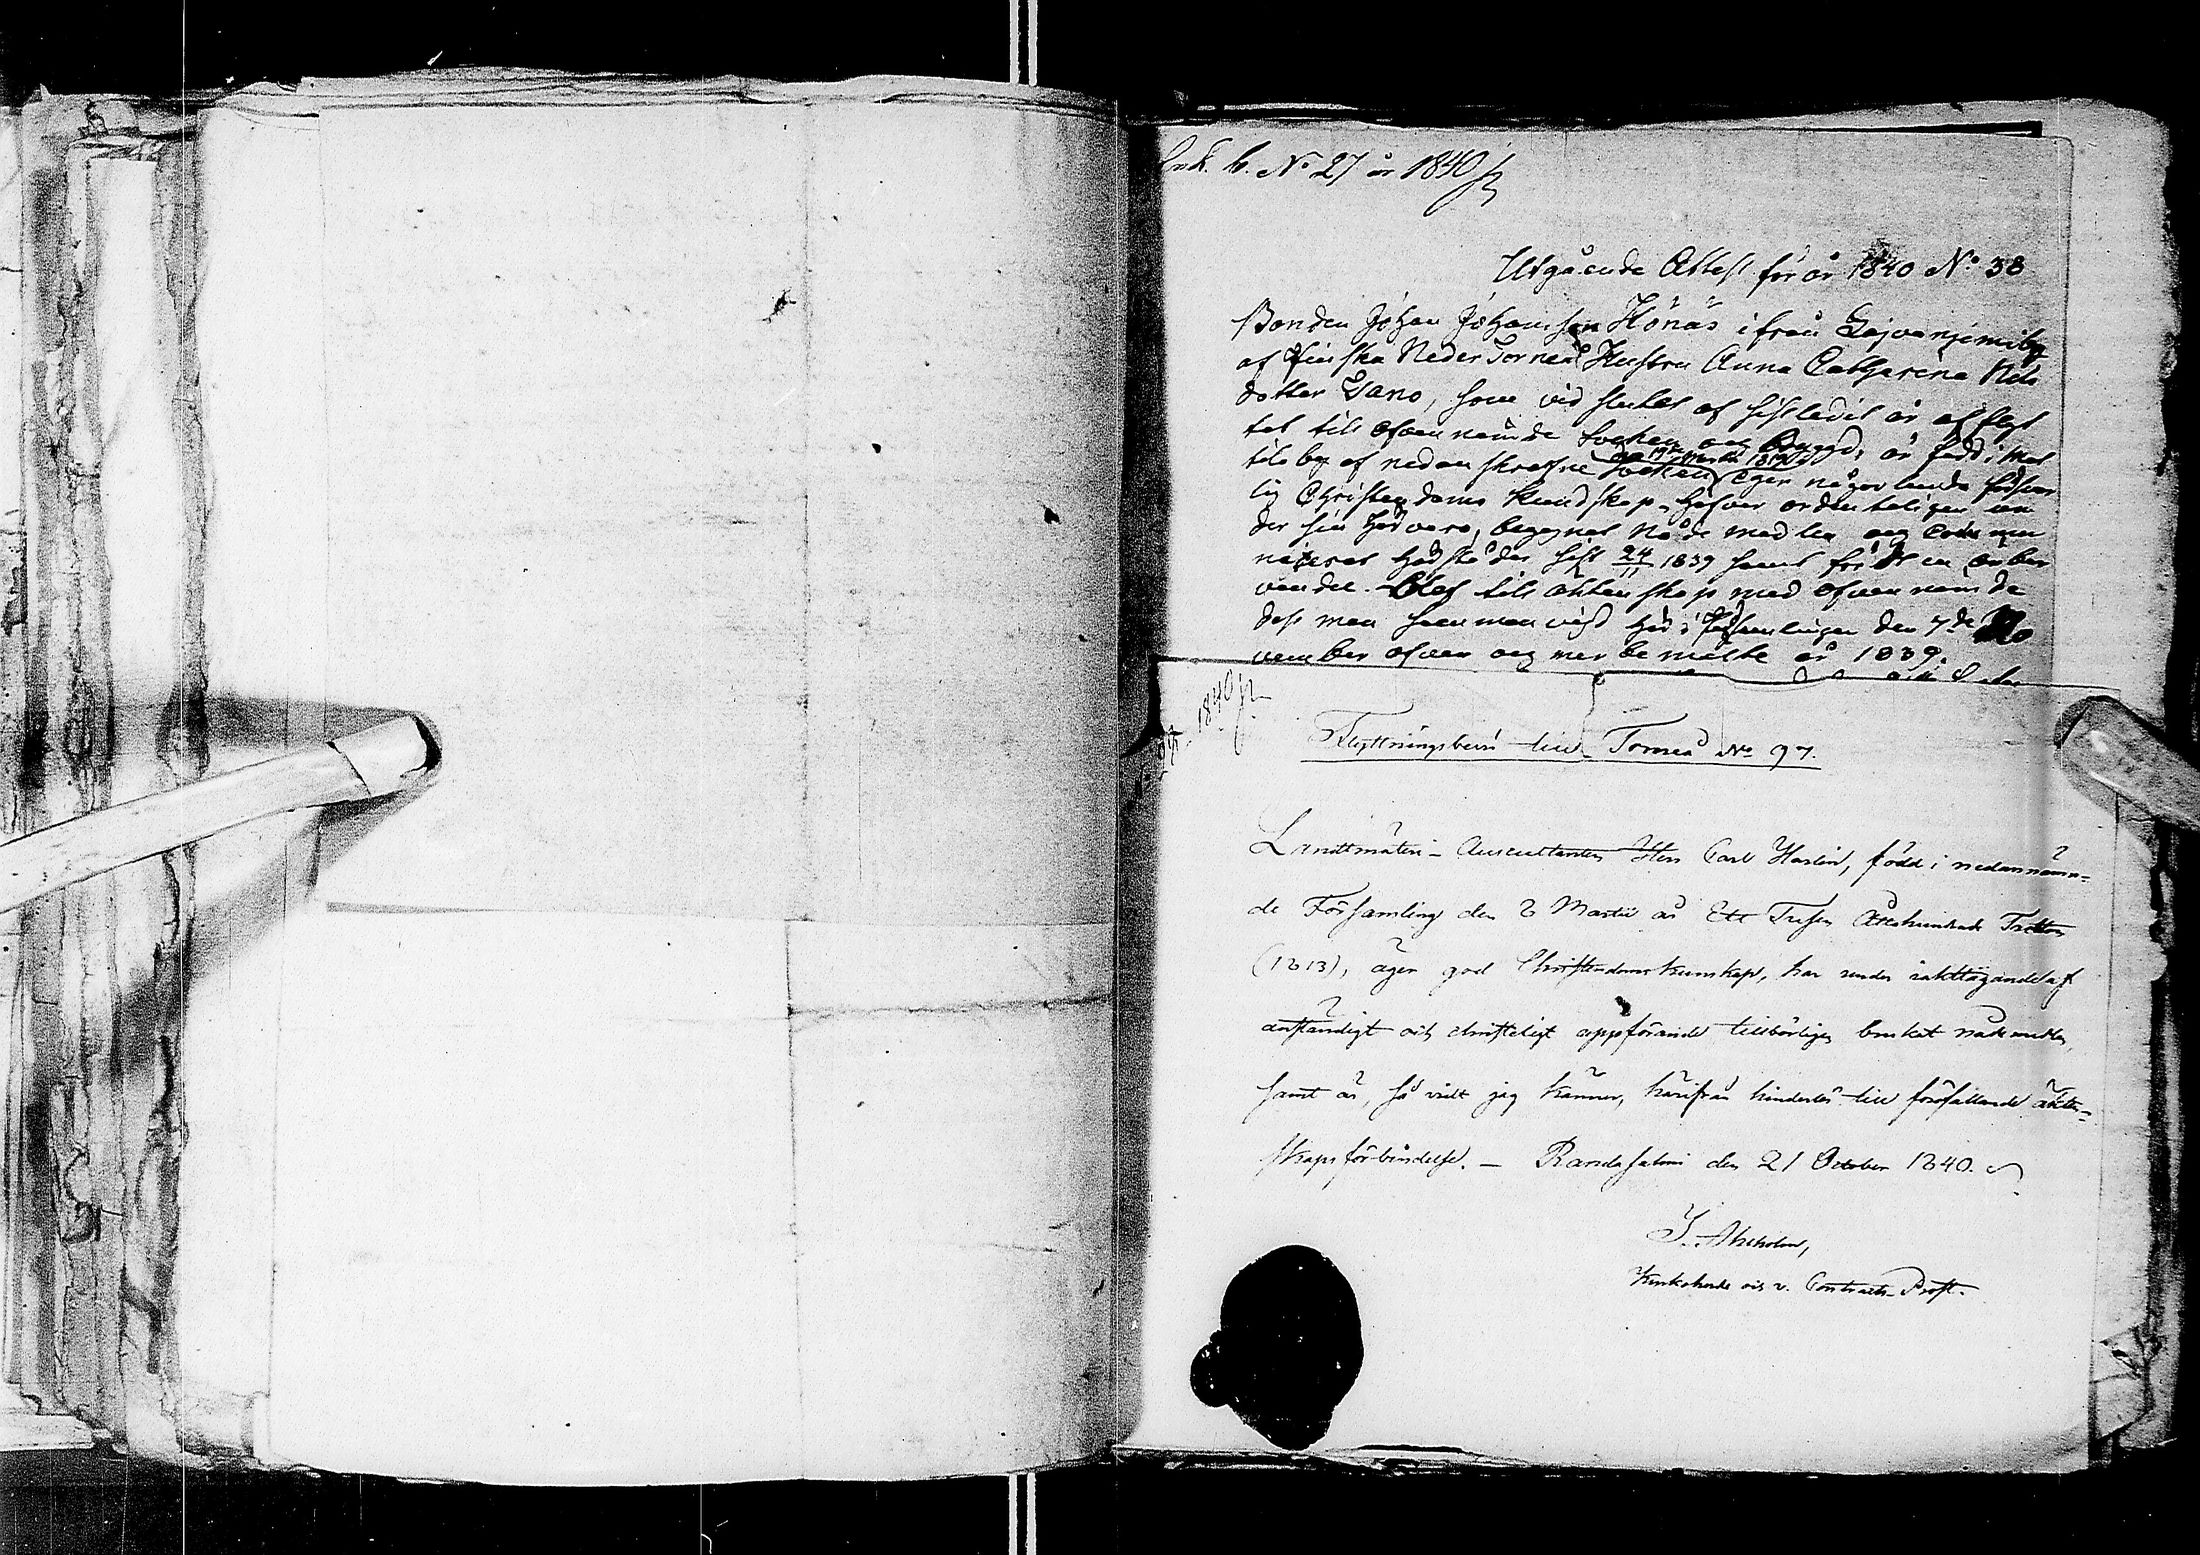 Ink. b. No 27 år 1840
Utgående Attest för år 1840 No 38
Bonden Johan Johansson Hönäs ifrån Laivaniemi by
af Finska Neder Torneå Hustru Anna Catharina Nils
dotter Jano, som vid slutet af sistledit år afflyt
tat till ofvannämde Socken och Bygd, är född i Mat
tila by af nedanskrefne Socken, eger någorlunda försvar
lig Christendoms Kundskap, hafver ordenteligen un
der sin härvaro, begagnat Nåde medlen och Commu
nicerat härstädes sist 24/11 1839 samt fri
vandel. Blef till äktenskap med ofvannämde
dess man sammanvigd här i Församlingen den 7de No
vember ofvan och merbemälte år 1839.
1840
Flyttningsbevis till Torneå No 97.
Landtmäteri-Auscultanten Herr Carl Harlin, född i nedannämn-
de Församling den 8 Martii år Ett Tusen Åttahundrade Tretton
(1813), äger god Christendomskunskap, har under iakttagande af
anständigt och christeligt uppförande tillbörligen brukat nådemedlen,
samt är, så vidt jag känner, härifrån hinderlös till förefallande äkten-
skapsförbindelse. — Randasalmi den 21 October 1840.
Kyrkoherde och v. Contracts-Prost.